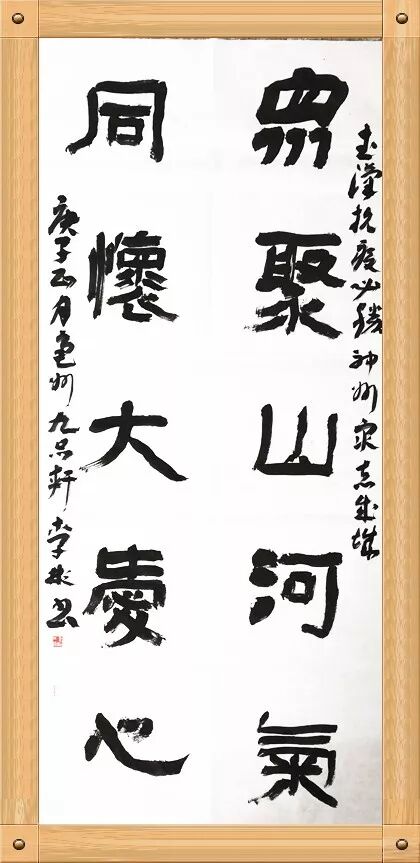 武漢抗疫必勝神州眾志成城
眾聚山河氣
同懷大愛心
庚子正月亳州九品軒李彬書